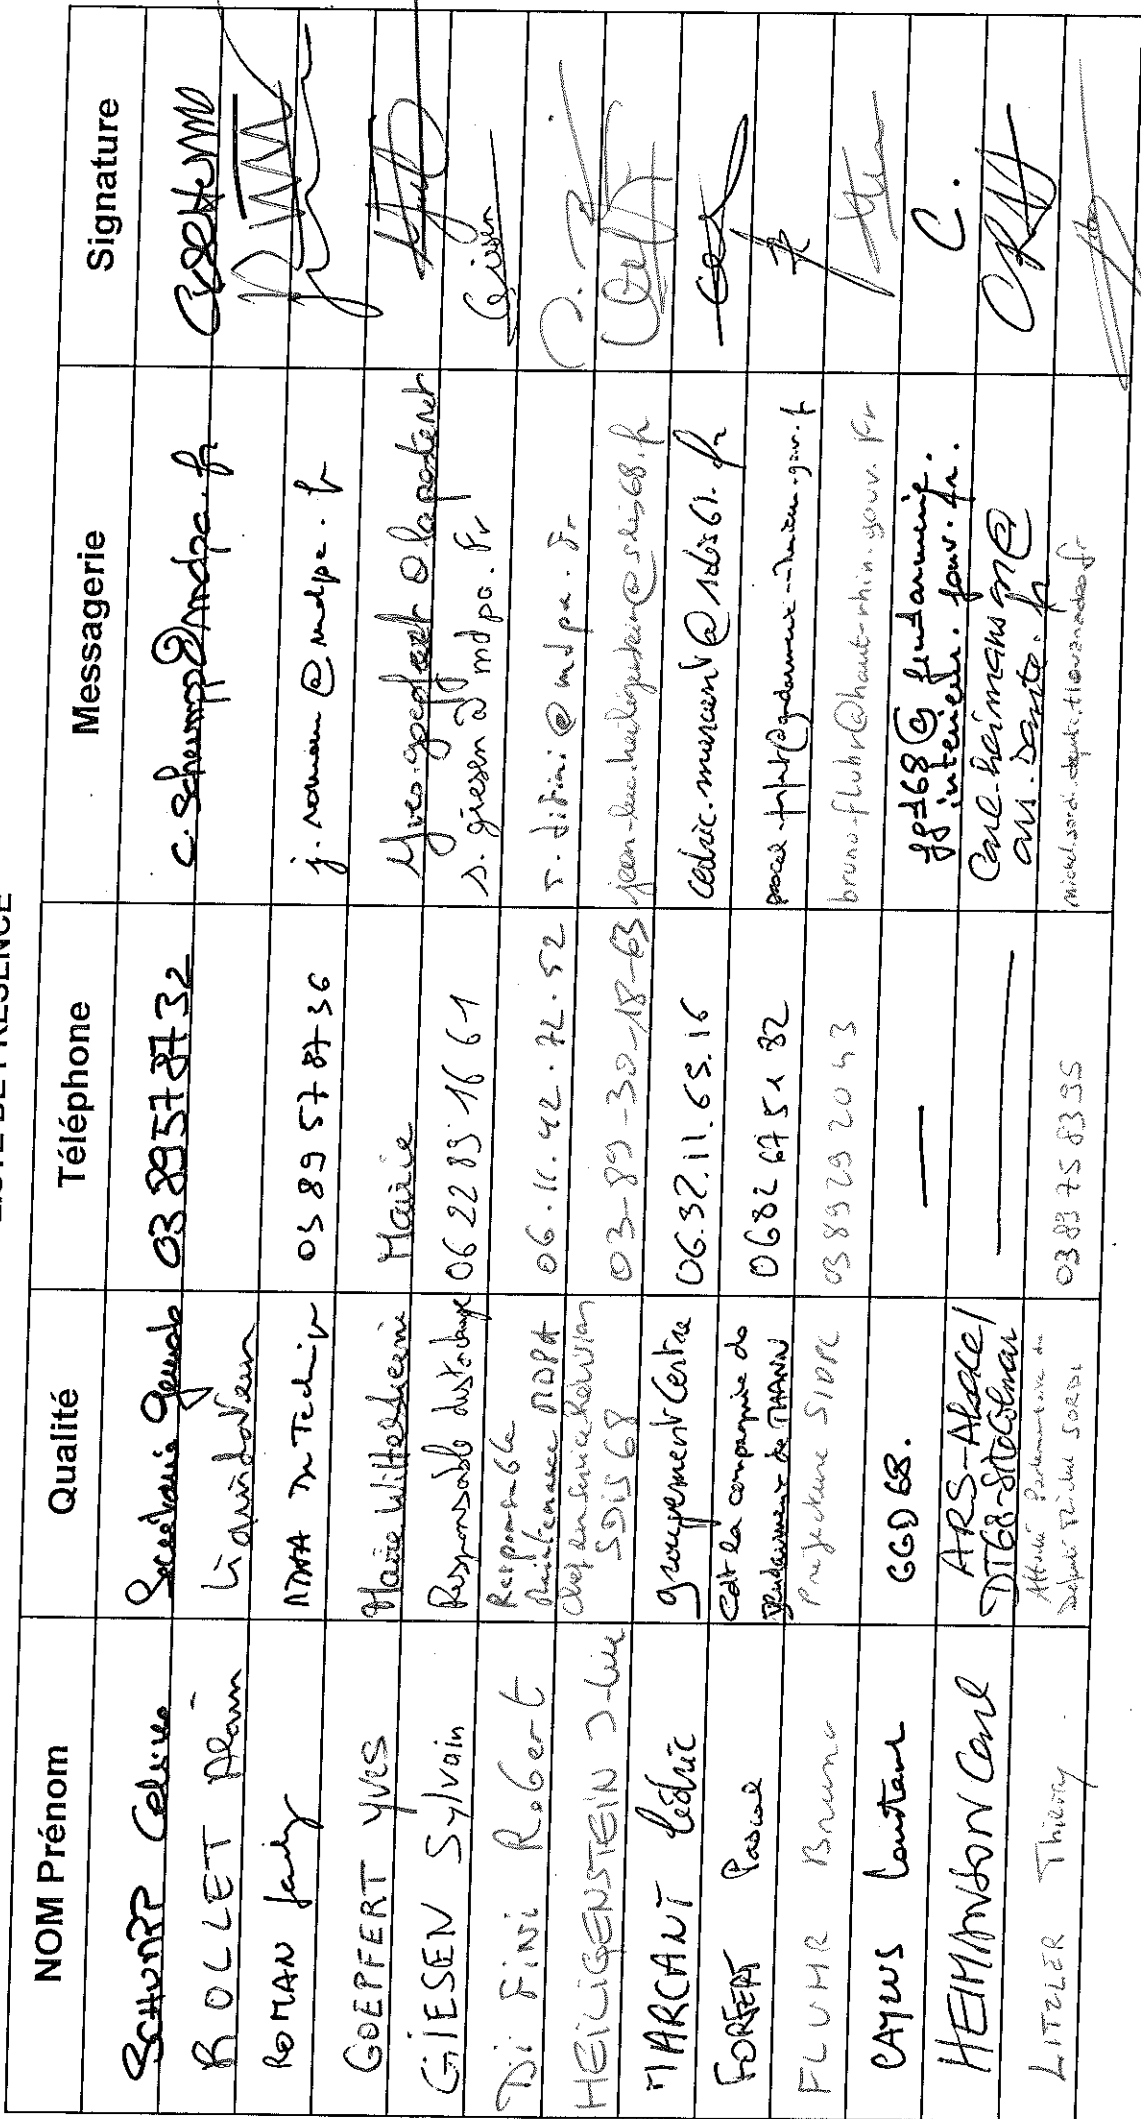 LISTE DE PRESENCE
NOM Prénom Qualité Téléphone Messagerie Signature
SCHUMPP Céline Secrétaire Générale 03 89 57 87 32 c.schumpp@mdpa.fr
ROLLET Alain Liquidateur
ROMAN 03 89 57 87 36 j.roman@mdpa.fr
GOEPFERT YVES Maire Wittelsheim Mairie Yves.goepfert@laposte.net
GIESEN Sylvain Responsable 06 22 89 16 61 s.giesen@mdpa.Fr
Di Fini Robert Responsable maintenance MDPA 06.11.42.72.52 r.difini@mdpa.Fr
HEILIGENSTEIN J-Luc Chef du Service SDIS 68 03-89-30-18-63 jean-luc.heiligenstein@sdis68.fr
MARCANT Cédric groupement Centre 06.32.11.65.16 cedric.marcant@sdis61.fr
FORFERT Pascal Cdt la compagnie de gendarmerie de THANN 06 82 67 51 82
FLUHR Bruno Préfecture SIDPC 03 89 29 20 43 bruno.fluhr@haut-rhin.gouv.Fr
CAYUS GGD 68. — ggd68@gendarmerie.
interieur.gouv.fr. C.
HEIMANSON Carl ARS-Alsace/ — Carl.heimanson@
DT68-Site Colmar ars.sante.fr
LITZLER Thierry Attaché Parlementaire du 03 89 75 83 95
Député Michel SORDI